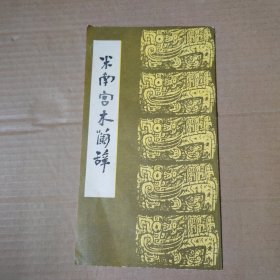 米南宫木兰辞